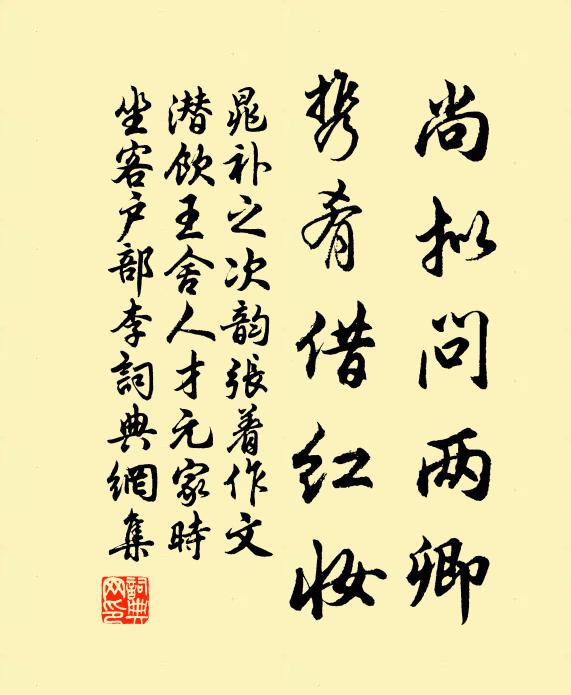 尚拟问两卿
携肴借红妆
晁补之次韵张著作文
潜饮王舍人才元家時
坐客户部李詞典網集
詞典網印